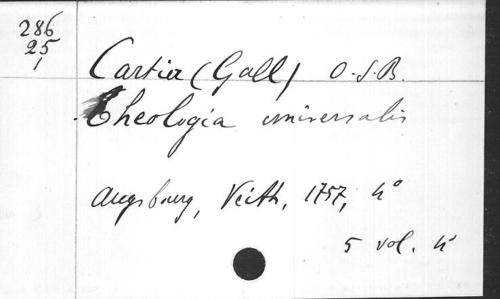 286
25
1
Cartier (Gall) O.S.B.
Theologia universalis
Augsbourg, Veith, 1757, 4°
5 vol. 4°